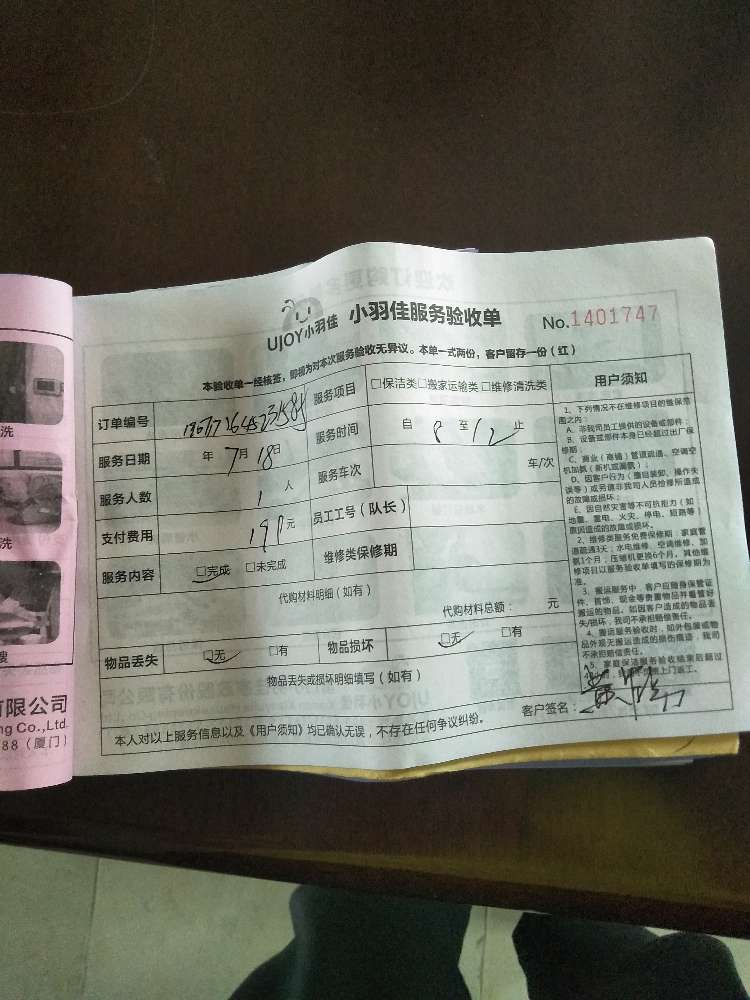 UJOY小羽佳 小羽佳服务验收单 No.1401747
本验收单一经核签，即视为对本次服务验收无异议。本单一式两份，客户留存一份（红）
订单编号 服务项目 □保洁类□搬家运输类□维修清洗类 用户须知
服务日期 年 7月18日 服务时间 自 8 至 12 止
服务人数 1 人 服务车次 车/次
支付费用 190元 员工工号（队长）
服务内容 □完成 □未完成 维修类保修期
代购材料明细（如有）
代购材料总额： 元
物品丢失 □无 □有 物品损坏 □无 □有
物品丢失或损坏明细填写（如有）
客户签名：
本人对以上服务信息以及《用户须知》均已确认无误，不存在任何争议纠纷。
1、下列情况不在维修项目的维保范围之内：
A、非我司员工提供的设备或部件；
B、设备或部件本身已经超过出厂保修期；
C、商业（商铺）管道疏通、空调空机加氟（新机或漏氟）；
D、因客户行为（擅自装卸、操作失误等）或另请非我司人员检修所造成的故障或损坏；
E、因自然灾害等不可抗拒力（如地震、雷电、火灾、停电、短路等）原因造成的故障或损坏。
2、维修类服务免费保修期：家庭管道疏通3天；水电维修、空调维修、加氟1个月；压缩机更换6个月。其他维修项目以服务验收单填写的保修期为准。
3、搬运服务中，客户应随身保管证件、首饰、现金等贵重物品并看管好搬运的物品。如因客户造成的物品丢失/损坏，我司不承担赔偿责任。
4、搬运服务验收时，如外包装或物品外观无搬运造成的损伤痕迹，我司不承担赔偿责任。
5、家庭保洁服务验收结束后超过
上门返工。
洗
洗
搜
有限公司
ng Co.,Ltd.
88（厦门）